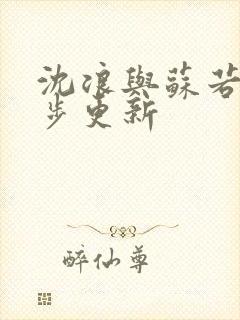 沈浪與蘇若
步更新
醉仙尊